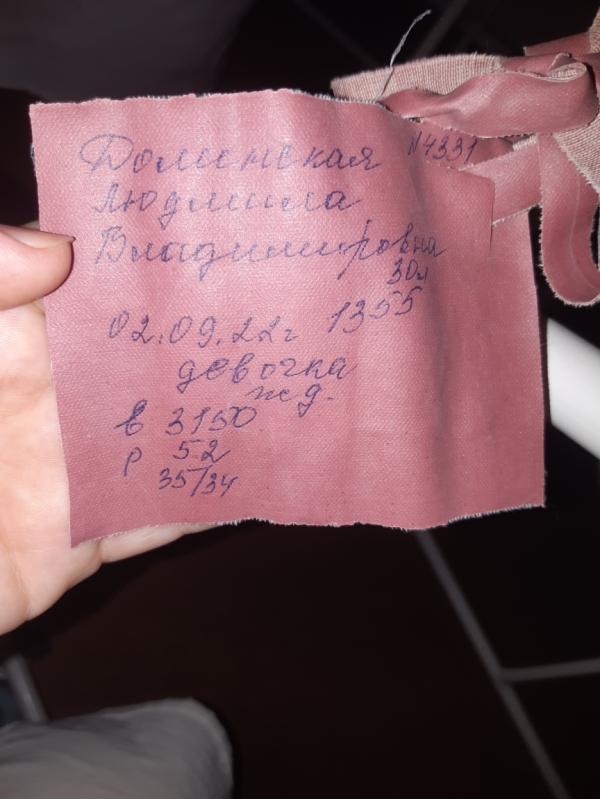 Доминская N4331
Людмила
Владимировна
30л
02.09.22г 1355
девочка
жд.
в 3150
р 52
35/34